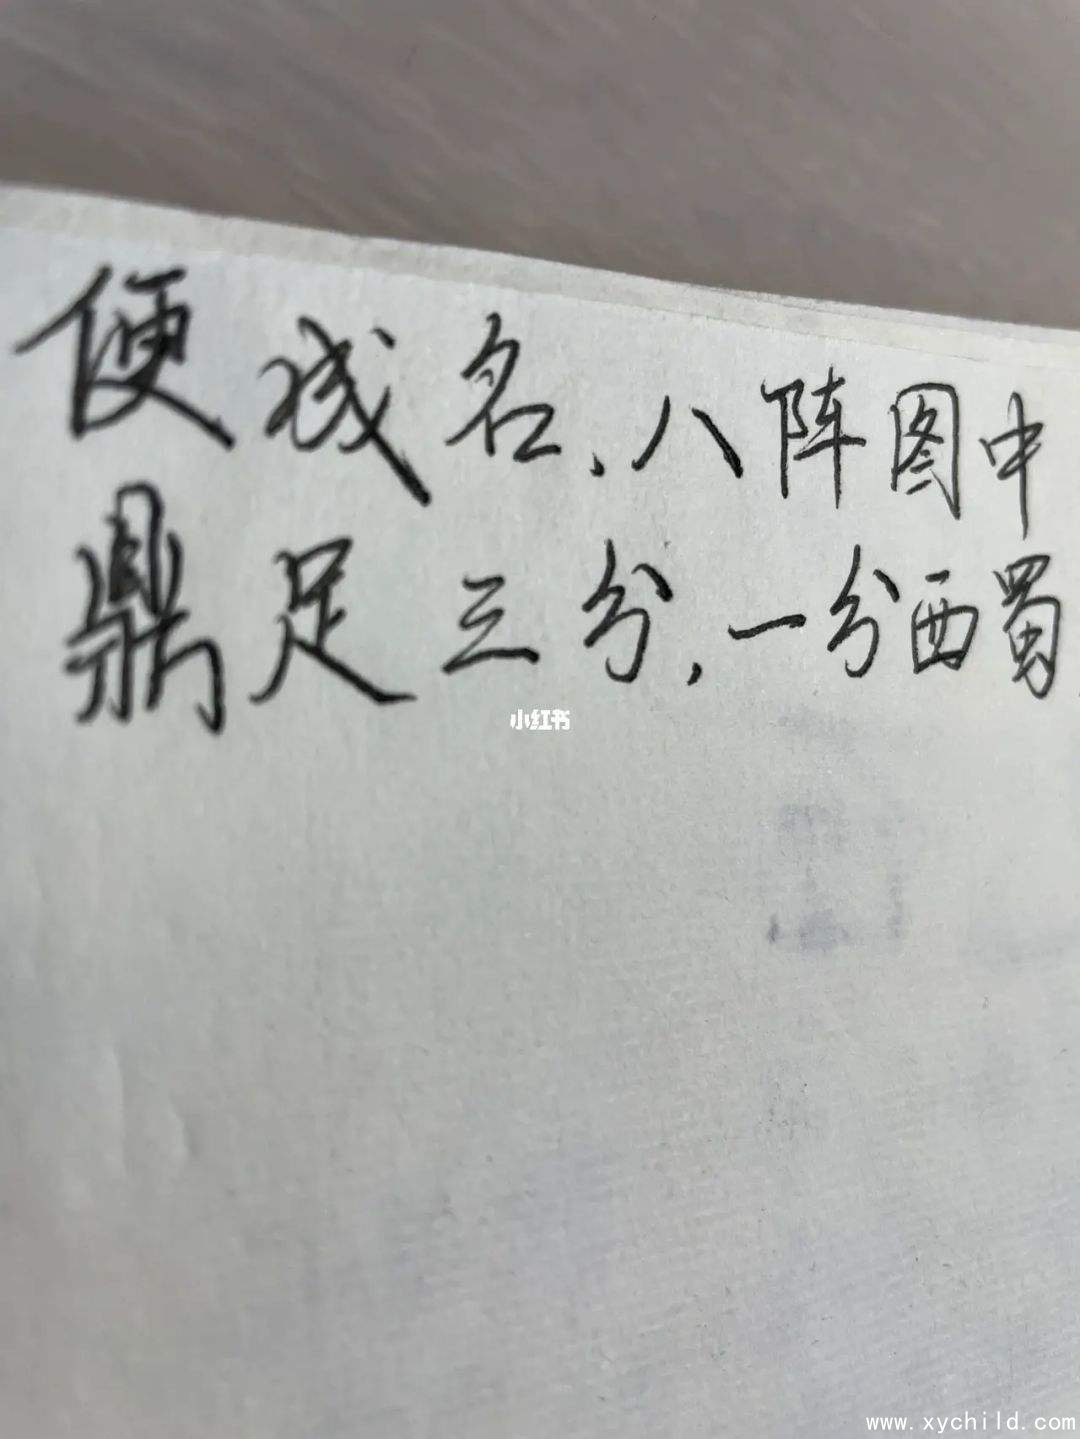 便成名、八阵图中
鼎足三分，一分西蜀
小红书
www.xychild.com